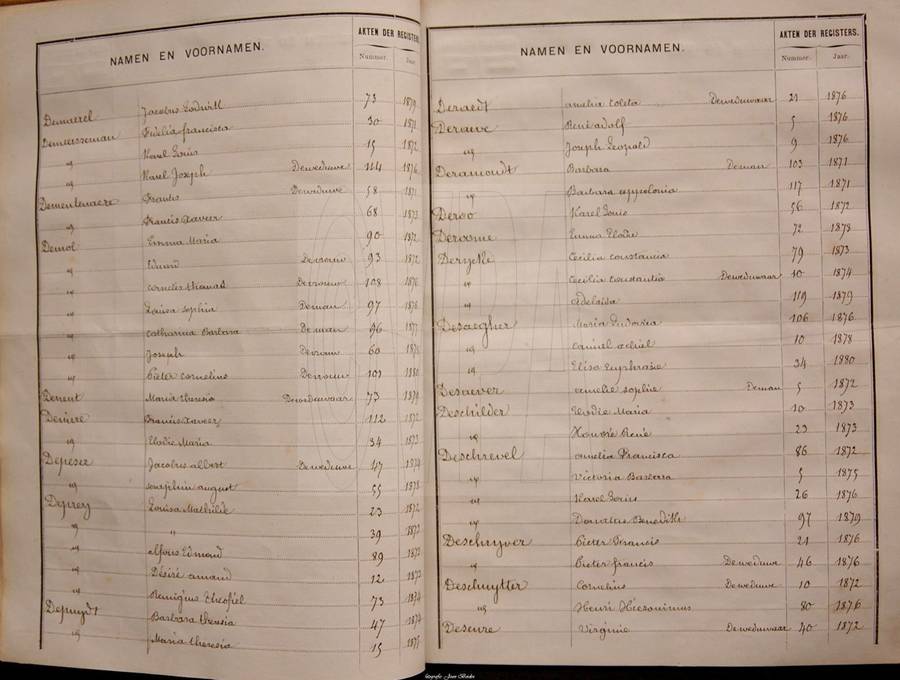 NAMEN EN VOORNAMEN. AKTEN DER REGISTERS
Nummer. Jaar.
Demaerel Jacobus Lodwill 73 1879
Demeersseman Fidelia francisca 30 1871
" Karel Louis 15 1872
" Karel Joseph Deweduwe 114 1876
Dementenaere Francis Deweduwe 58 1871
" Francis Xaveer 68 1873
Demol Emma Maria 90 1872
" Eduard Devrouw 93 1872
" cornelis thomas Devrouw 108 1876
" Louisa Sophia Deman 97 1876
" catharina Barbara Deman 96 1877
" Joseph Devrouw 60
" Pieter cornelius Devrouw 101 1880
Denent Maria theresia Deweduwaar 73 1879
Francis Xaveer 112 1872
" Elodie Maria 34 1873
Depesse Jacobus albert Deweduwe 47 1874
" seraphin august 55 1878
Deprey Louisa Mathilde 23 1872
" " 39 1872
" alfons Edmond 89 1872
" Désiré amand 12 1873
" Remigius theofiel 73 1874
Depuydt Barbara theresia 47 1874
" Maria theresia 15 1875
NAMEN EN VOORNAMEN. AKTEN DER REGISTERS.
Nummer. Jaar.
Deraedt amelia Coleta Deweduwaar 21 1876
Deraeve René adolf 5 1876
" Joseph Leopold 9 1876
Deramoudt Barbara Deman 103 1871
" Barbara appolonia 117 1871
Deroo Karel Louis 56 1872
Emma Elodie 72 1878
Derycke Cecilia constancia 79 1873
" Cecilia Constantia Deweduwaar 10 1874
" adelaïda 119 1879
Desaegher Maria Ludovica 106 1876
" camiel achiel 10 1878
" Elisa Euphrasie 34 1880
Desaever amelie sophie Deman 5 1872
Deschilder Elodie Maria 10 1873
" Honoré René 23 1873
Deschrevel amelia Francisca 86 1872
" Victoria Barbara 5 1875
" Karel Louis 26 1876
" Donatus Benedikt 97 1879
Deschuyver Pieter Francis 21 1876
" Pieter francis Deweduwe 46 1876
Deschuytter Cornelius Deweduwe 10 1872
" Henri Hieronimus 80 1876
Deseure Virginie Deweduwaar 40 1872